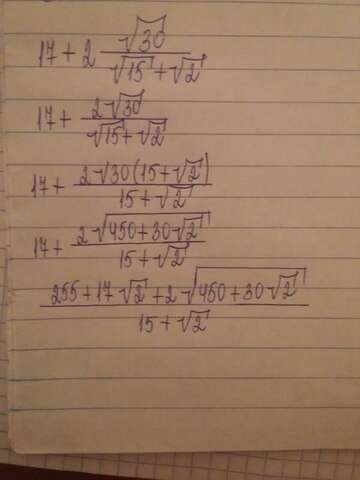 17 + 2 √30 / (√15 + √2)
17 + 2√30 / (√15 + √2)
17 + 2√30(15+√2) / (15+√2)
17 + 2√(450+30√2) / (15+√2)
(255+17√2+2√(450+30√2)) / (15+√2)